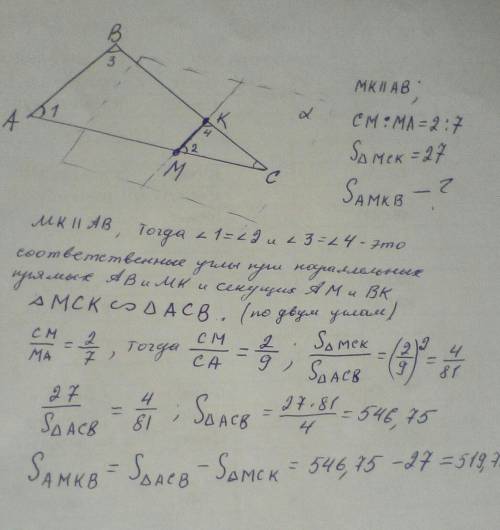 B
3
A
1
K
4
2
M
C
α
MK∥AB;
CM:MA=2:7
S△MCK=27
SAMKB — ?
MK∥AB, тогда ∠1=∠2 и ∠3=∠4 - это
соответственные углы при параллельных
прямых AB и MK и секущих AM и BK
△MCK ∽ △ACB. (по двум углам)
CM/MA = 2/7, тогда CM/CA = 2/9; S△MCK/S△ACB = (2/9)² = 4/81
27/S△ACB = 4/81; S△ACB = 27*81/4 = 546,75
SAMKB = S△ACB − S△MCK = 546,75 − 27 = 519,7